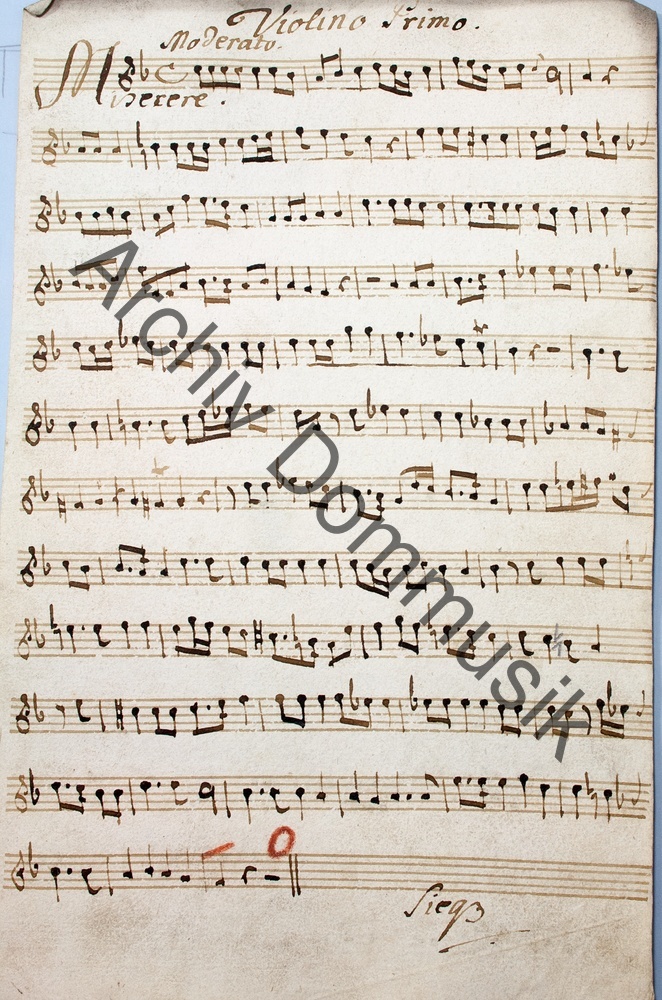 Violino Primo.
Moderato.
Miserere.
Archiv Dommusik